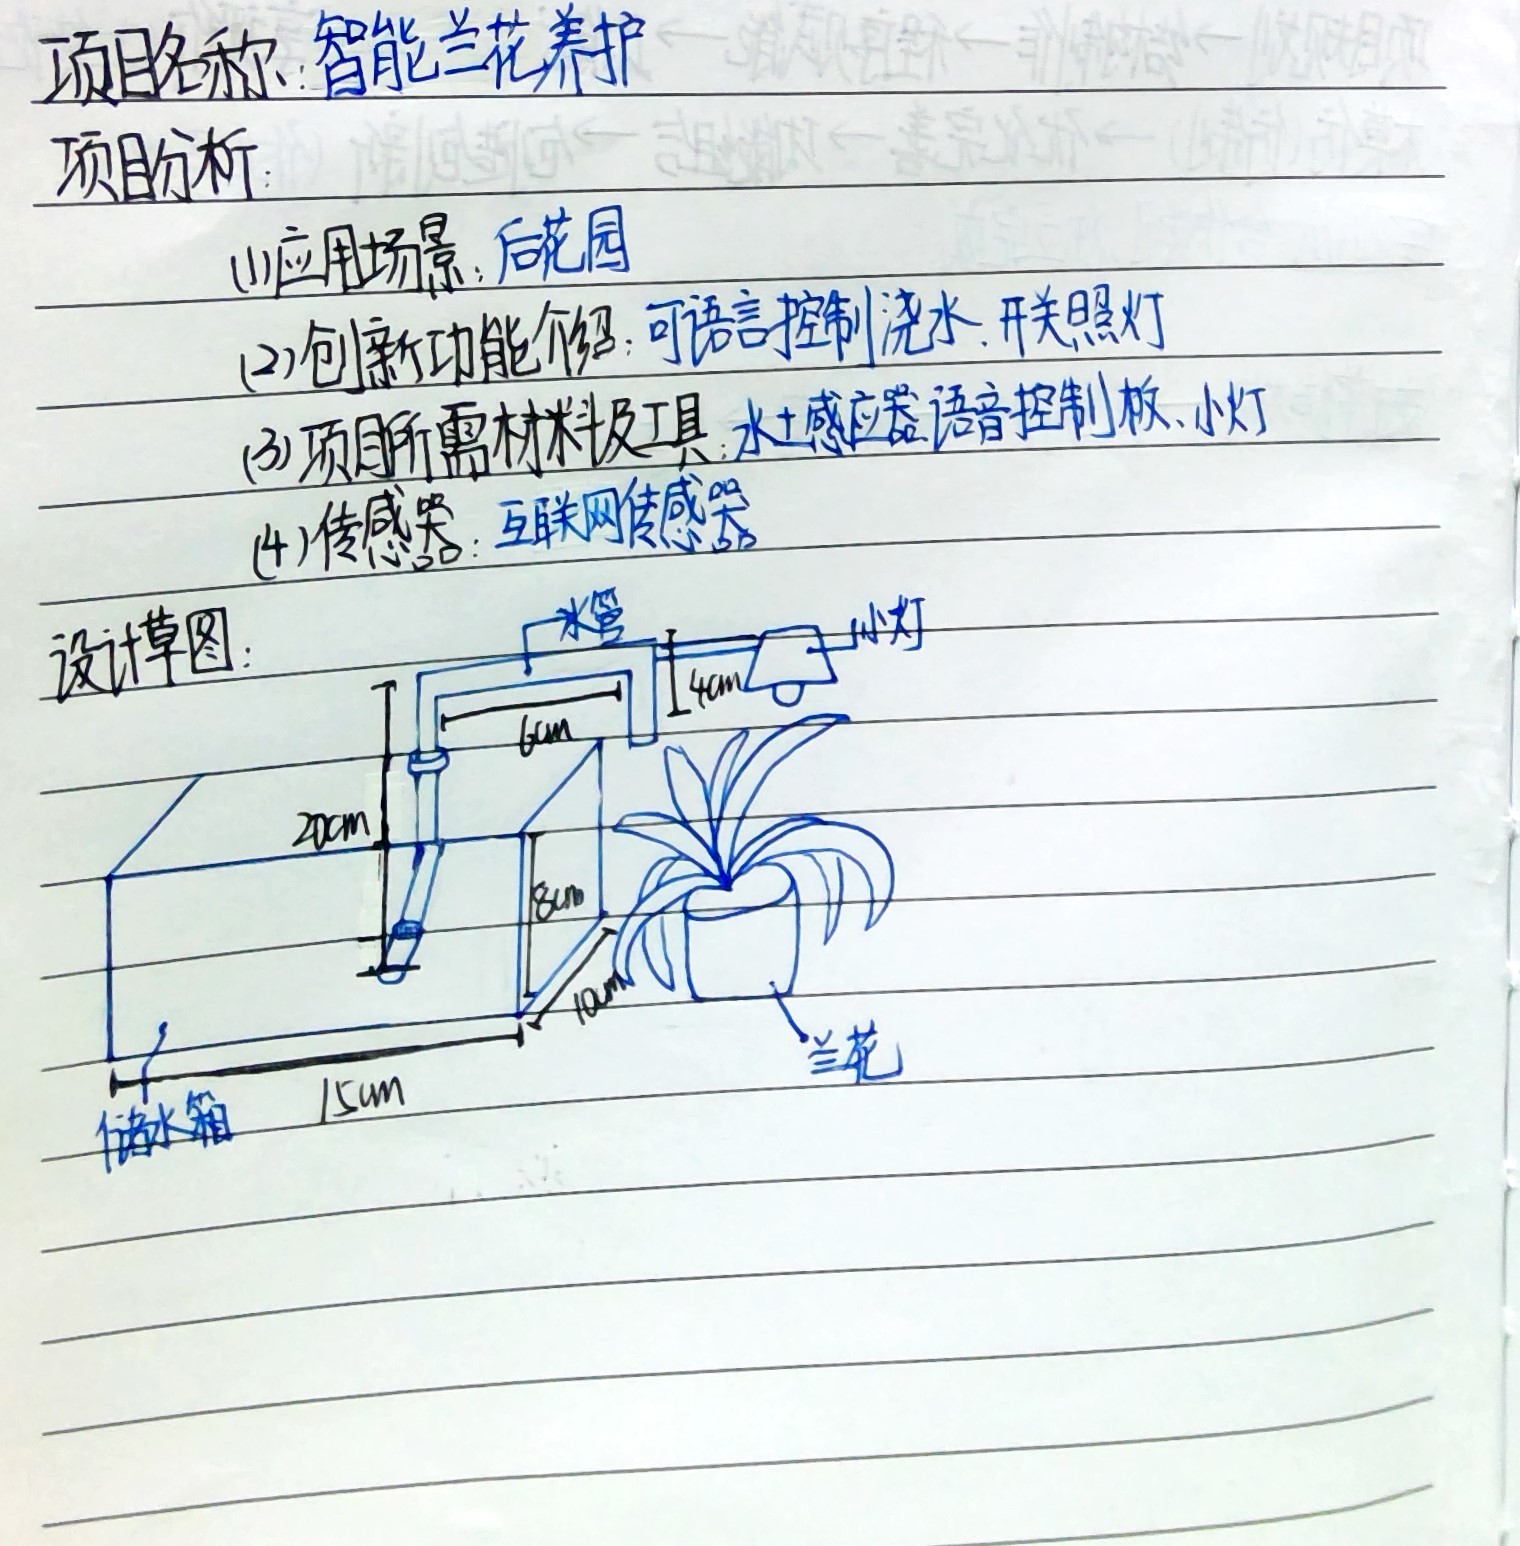 项目名称:智能兰花养护
项目分析:
(1)应用场景:后花园
(2)创新功能介绍:可语言控制浇水、开关照灯
(3)项目所需材料及工具:水土感应器、语音控制板、小灯
(4)传感器:互联网传感器
设计草图:
水管
小灯
4cm
6cm
20cm
8cm
10cm
兰花
15cm
储水箱